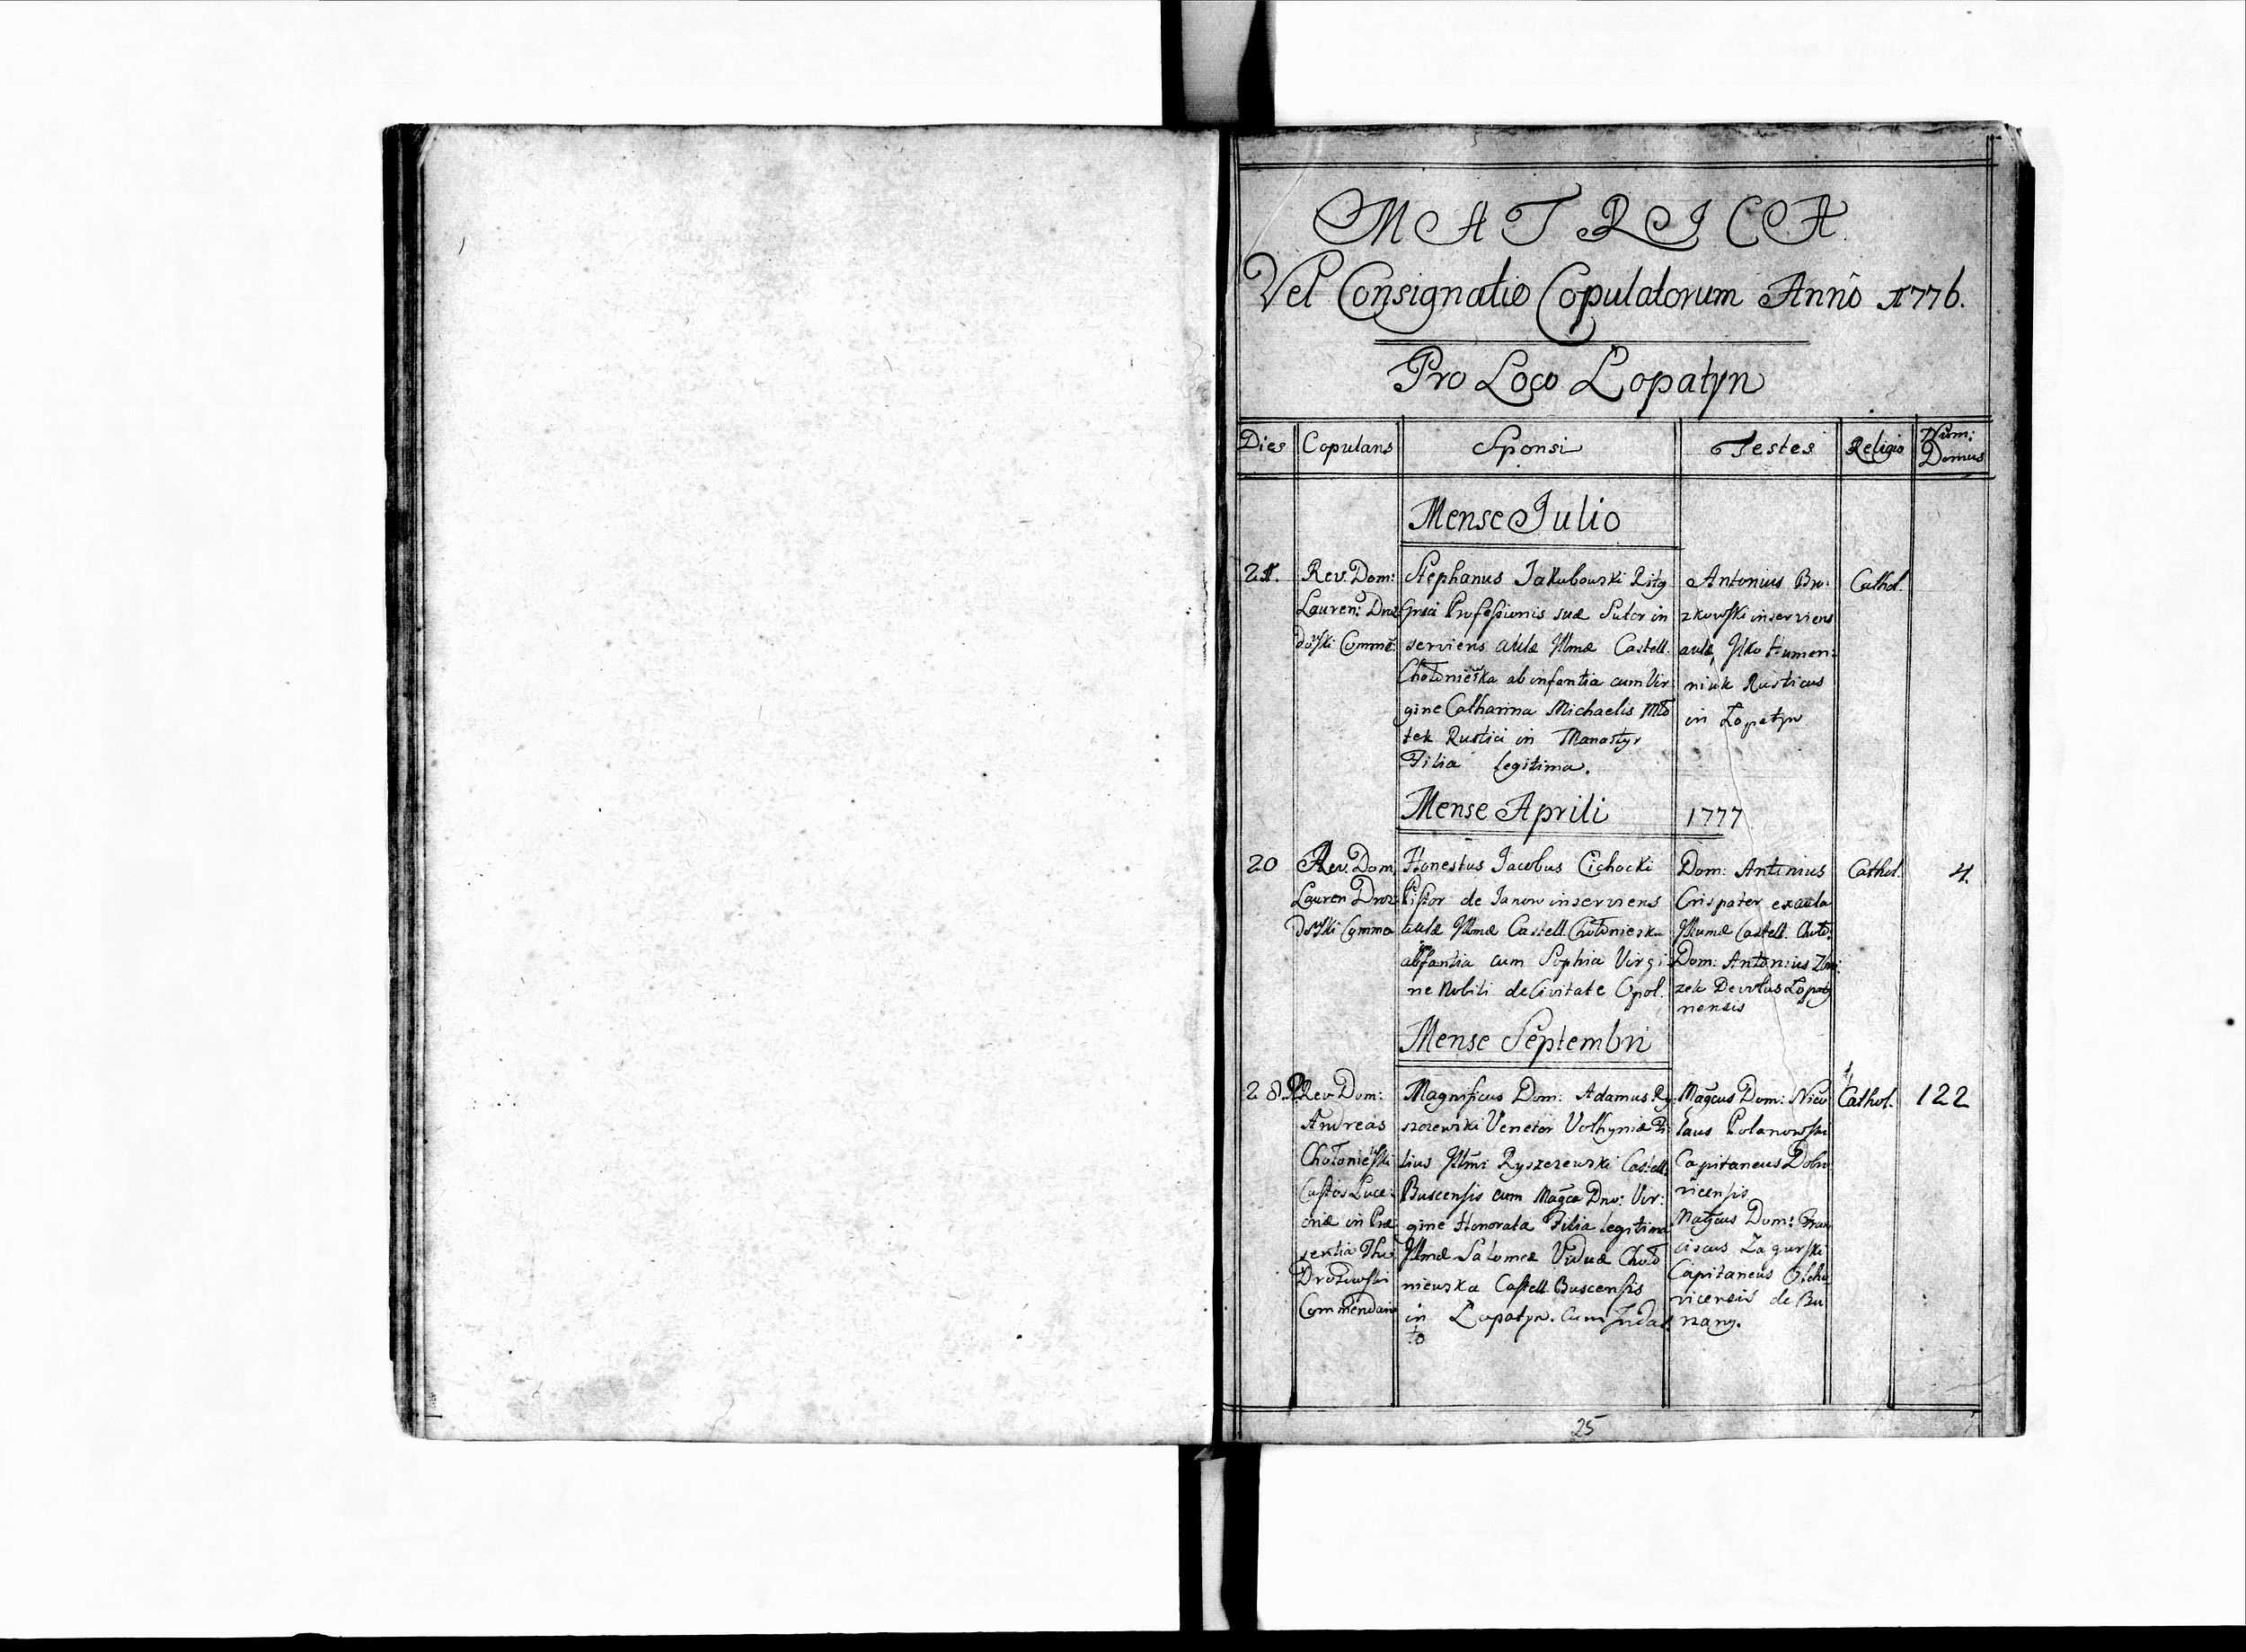 MATRICA
Vel Consignatio Copulatorum Anno 1776.
Pro Loco Lopatyn
Dies Copulans Sponsi Testes Religio Num: Domus
Mense Julio
21.
Rev. Dom:
Lauren: Droz
dowski Comme:
Stephanus Jakubowski Ritg
Græci Professionis suæ Sutor in
serviens aulæ Illmæ Castell.
Chołoniewska ab infantia cum Vir
gine Catharina Michaelis Mło
tek Rustici in Manastyr
Filia legitima.
Antonius Bro-
zkowski inserviens
aulæ, Ilko Humen:
niuk Rusticus
in Lopatyn
Cathol.
Mense Aprili 1777
20
Rev. Dom
Lauren Droz
dowski Comme
Honestus Jacobus Cichocki
Pistor de Janow inserviens
aulæ Illmæ Castell. Chołoniesk
ab infantia cum Sophia Virgi
ne Nobili de Civitate Opol.
Dom: Antonius
Crispater ex aula
Illumæ Castell. Choło:
Dom: Antonius
zek Devotus Lopaty
nensis
Cathol.
4.
Mense Septembri
28.
Rev Dom:
Andreas
Chołoniewski
Custos Luce:
oriæ in Præ
sentia
Drozdowski
Commendario
Magnificus Dom: Adamus Ry:
szczewski Venetor Volhyniæ Fi
lius Illmi Ryszczewski Castell:
Buscensis cum Magca Dno: Vir:
gine Honorata Filia legitima
Illmæ Salomeæ Viduæ Choło
niewska Castell. Buscensis
in Lopatyn. Cum Indul
to
Magcus Dom: Nico
laus Polanowski
Capitaneus Dobro
vicensis
Magcus Dom: Fran
ciscus Zagurski
Capitaneus
vicensis de Bu
nany.
Cathol.
122
25